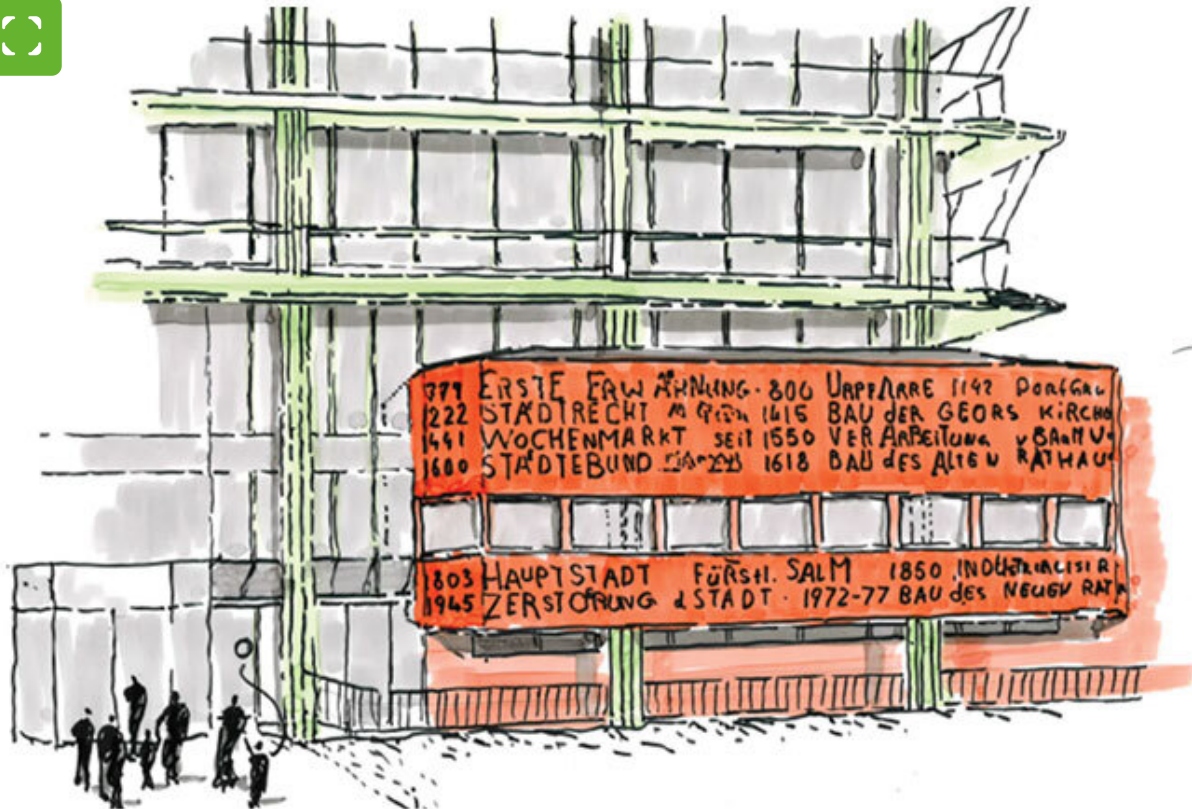 779 ERSTE ERWÄHNUNG · 800 URPFARRE 1142
1222 STADTRECHT 1415 BAU DER GEORS KIRCHE
1441 WOCHENMARKT SEIT 1550 VERARBEITUNG
1600 STÄDTEBUND 1618 BAU DES ALTEN RATHAU
1803 HAUPTSTADT FÜRSTL. SALM 1850 INDUSTRIALISIR
1945 ZERSTÖRUNG d STADT · 1972-77 BAU DES NEUEN RAT